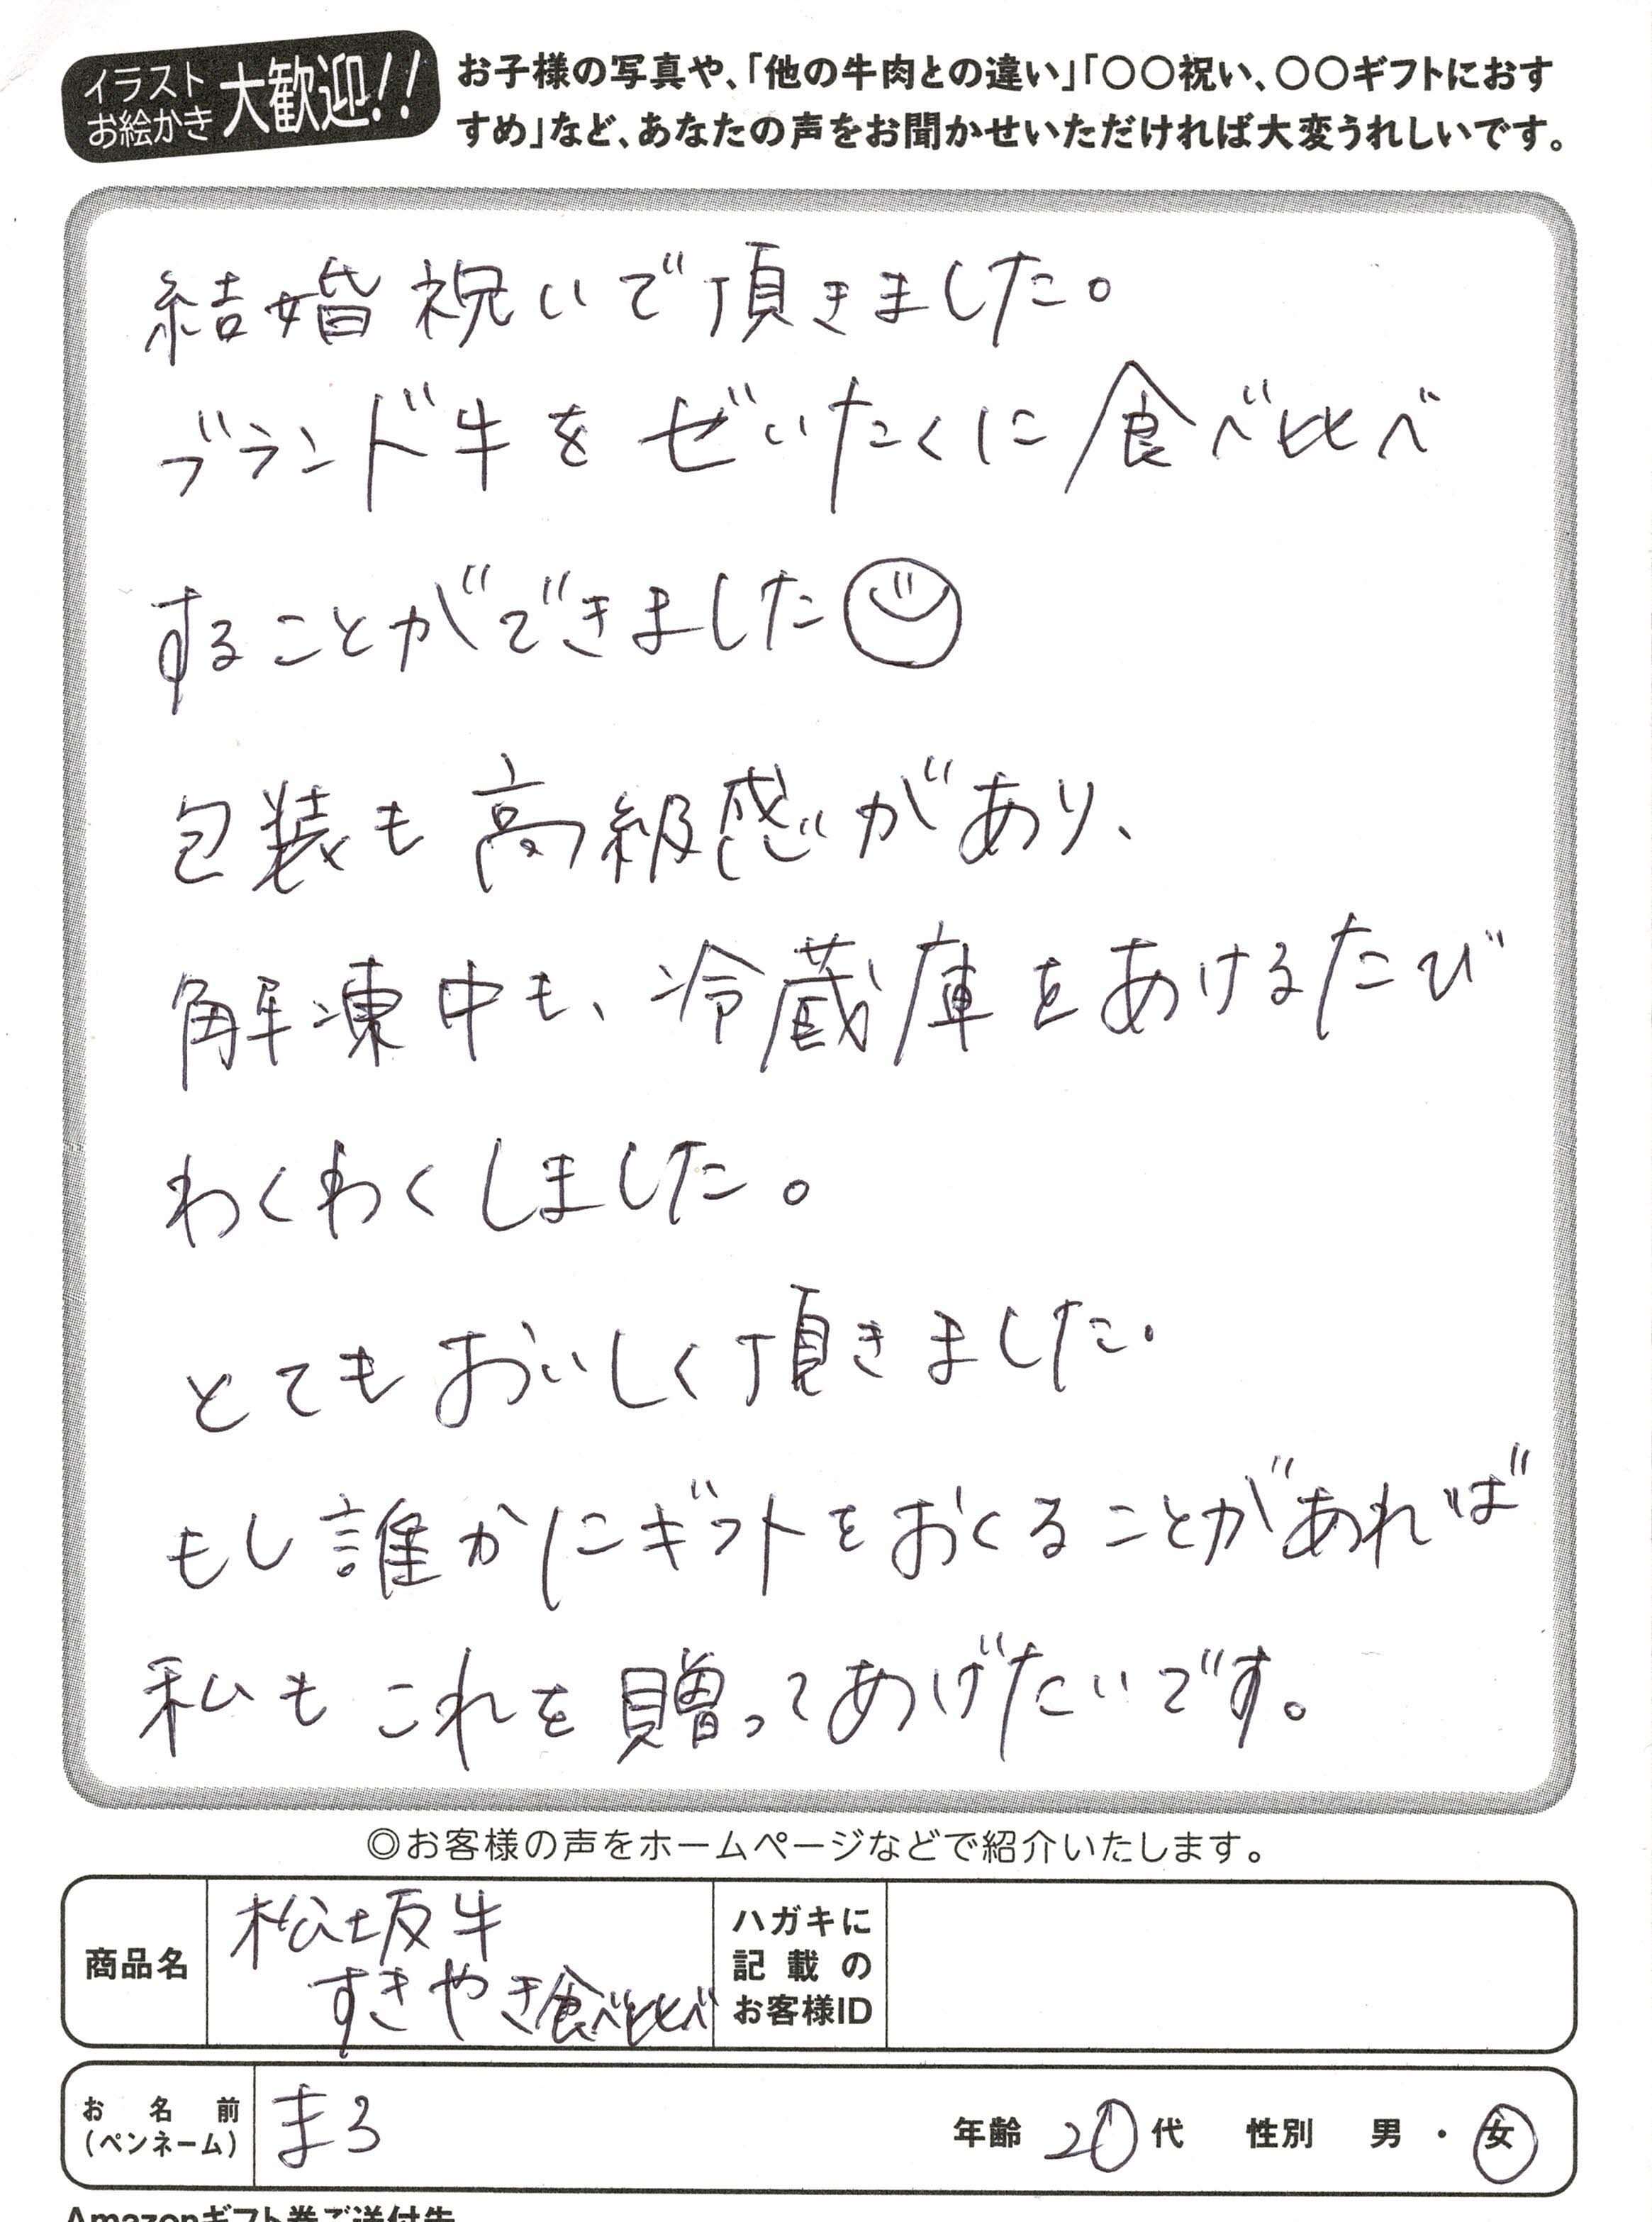 イラスト
お絵かき
大歓迎!!
お子様の写真や、「他の牛肉との違い」「〇〇祝い、〇〇ギフトにおす
すめ」など、あなたの声をお聞かせいただければ大変うれしいです。
結婚祝いで頂きました。
ブランド牛をぜいたくに食べ比べ
することができました
包装も高級感があり、
解凍中も、冷蔵庫をあけるたび
わくわくしました。
とてもおいしく頂きました.
もし誰かにギフトをおくることがあれば
私もこれを贈ってあげたいです。
◎お客様の声をホームページなどで紹介いたします。
商品名
松坂牛
すきやき食べ比べ
ハガキに
記載の
お客様ID
お名前
(ペンネーム)
まろ
年齢 20代 性別 男・女
Amazonギフト券ご送付先